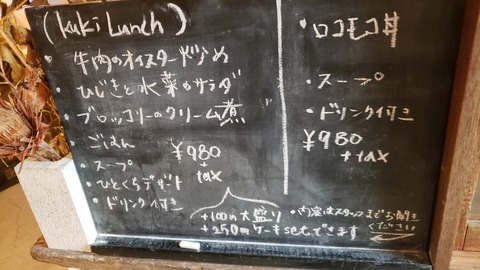 (kuki Lunch)
・牛肉のオイスター炒め
・ひじきと水菜のサラダ
・ブロッコリーのクリーム煮
・ごはん
・スープ
・ひとくちデザート
・ドリンク付き
¥980
+
tax
+100円大盛り
+250円ケーキsetできます
・ロコモコ丼
・スープ
・ドリンク付き
¥980
+tax
・内容はスタッフまでお聞き
ください